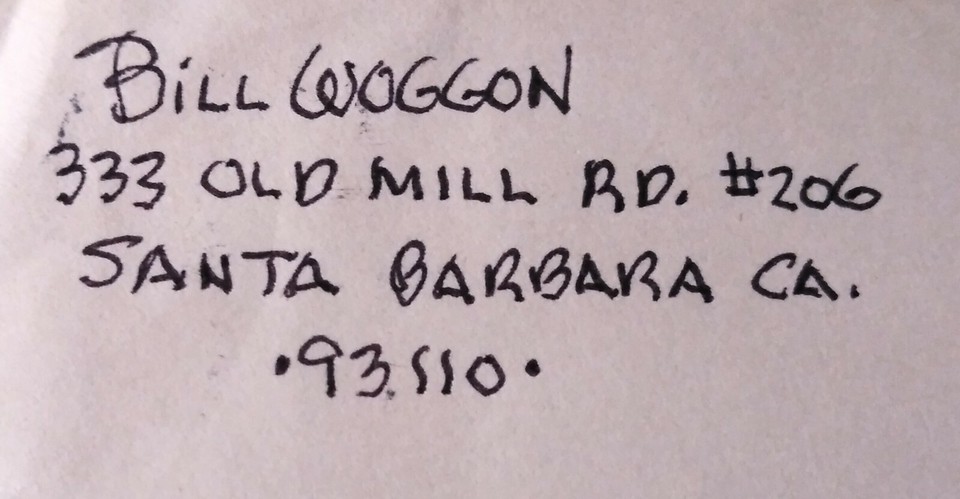 Bill Woggon
333 OLD MILL RD. #206
SANTA BARBARA CA.
·93110·